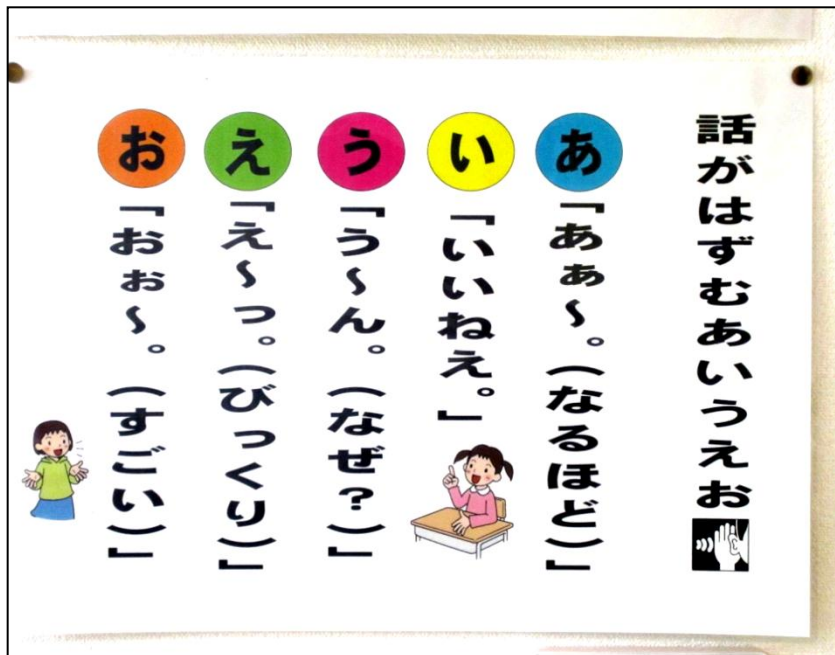 話がはずむあいうえお
あ「あぁ～。（なるほど）」
い「いいねえ。」
う「う～ん。（なぜ？）」
え「え～っ。（びっくり）」
お「おぉ～。（すごい）」